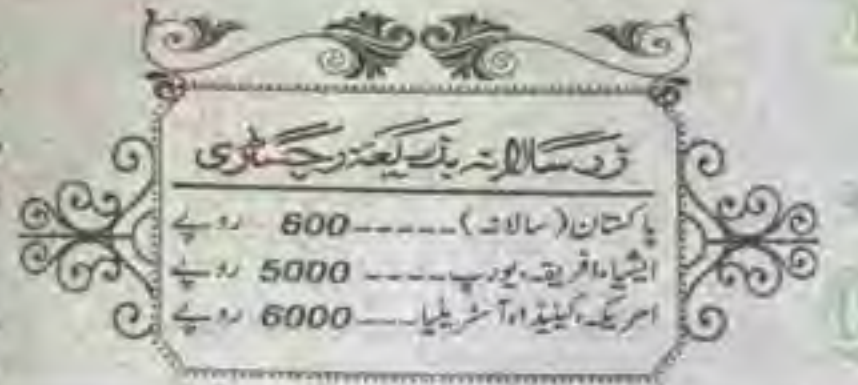 زرد سالانہ بذریعہ رجسٹری
پاکستان (سالانہ)-----600 روپے
ایشیا، افریقہ، یورپ----- 5000 روپے
امریکہ، کینیڈا، آسٹریلیا----6000 روپے